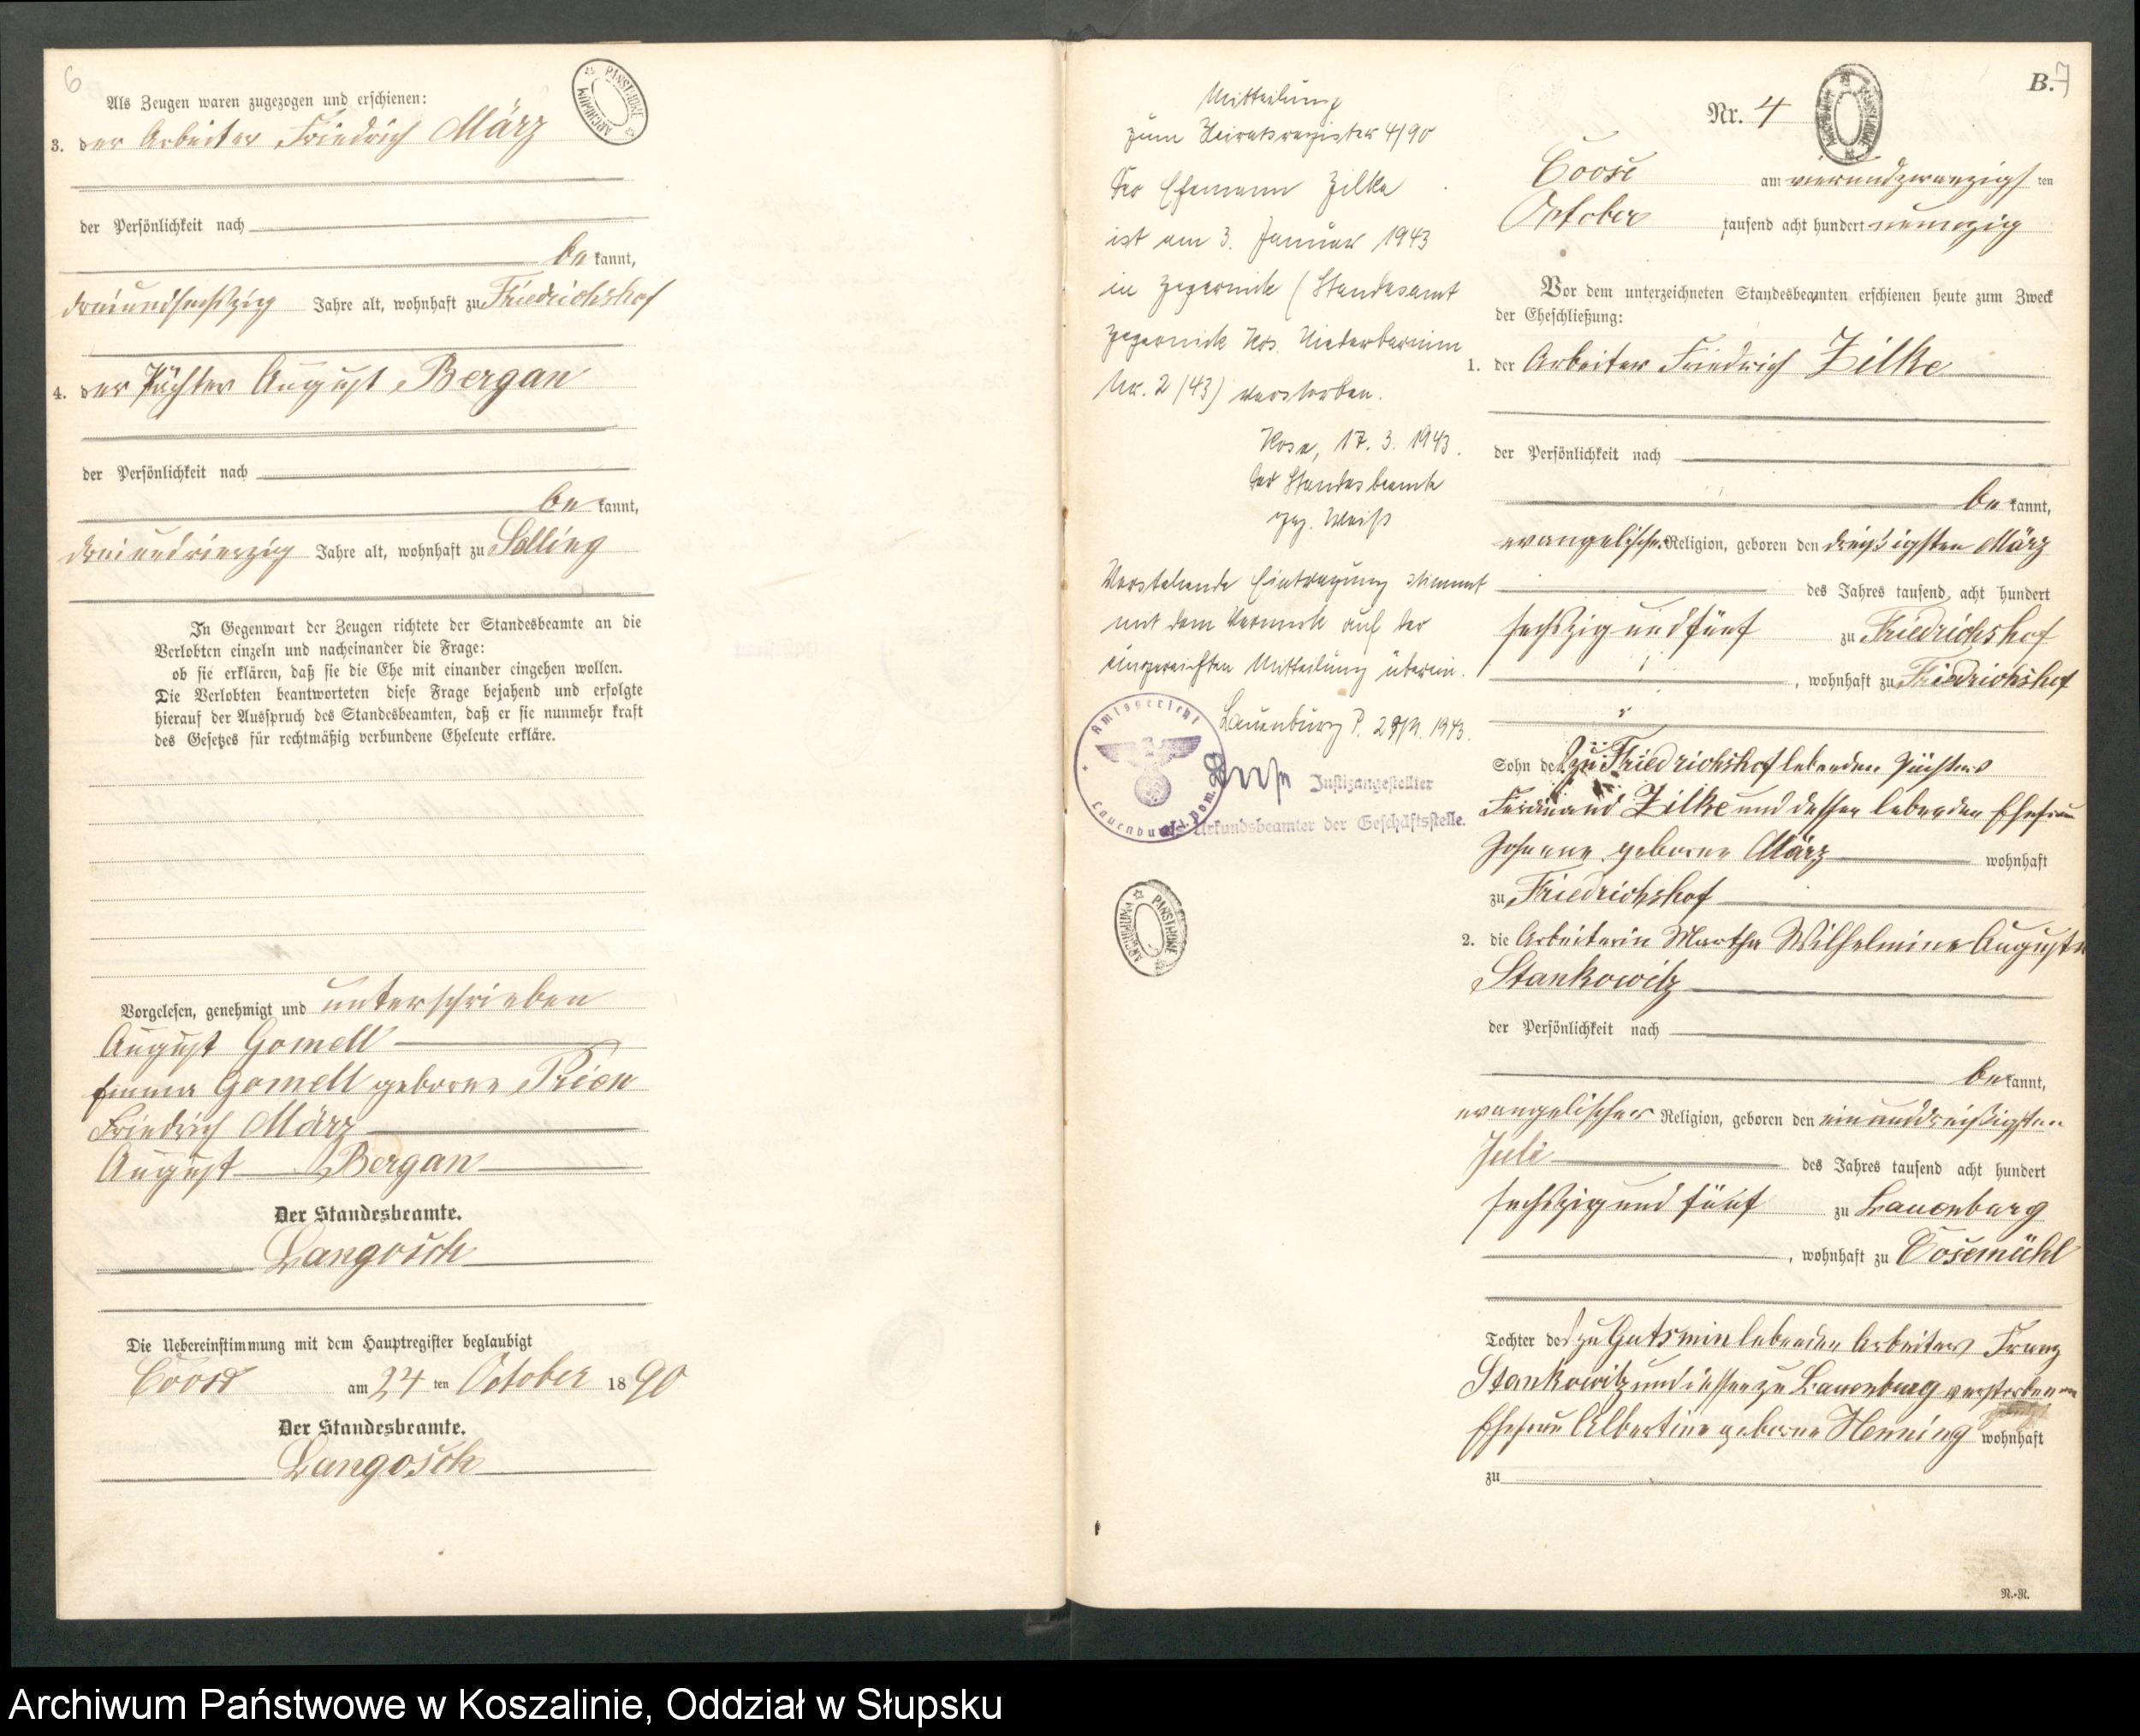 6
Als Zeugen waren zugezogen und erschienen:
3. der Arbeiter Friedrich März
der Persönlichkeit nach
be kannt,
dreiundsechszig Jahre alt, wohnhaft zu Friedrichshof
4. der Pächter August Bergan
der Persönlichkeit nach
be kannt,
dreiundvierzig Jahre alt, wohnhaft zu Solling
In Gegenwart der Zeugen richtete der Standesbeamte an die
Verlobten einzeln und nacheinander die Frage:
ob sie erklären, daß sie die Ehe mit einander eingehen wollen.
Die Verlobten beantworteten diese Frage bejahend und erfolgte
hierauf der Ausspruch des Standesbeamten, daß er sie nunmehr kraft
des Gesetzes für rechtmäßig verbundene Eheleute erkläre.
Vorgelesen, genehmigt und unterschrieben
August Gomell
Emma Gomell geborne Prien
Friedrich März
August Bergan
Der Standesbeamte.
Langosch
Die Uebereinstimmung mit dem Hauptregister beglaubigt
Coose am 24 ten October 18 90
Der Standesbeamte.
Langosch
Mitteilung
zum Heiratsregister 4/90
Der Ehemann Zilke
ist am 3. Januar 1943
in Zepernick (Standesamt
Zepernick Krs. Niederbarnim
Nr. 2/43) verstorben.
Kose, 17. 3. 1943.
Der Standesbeamte
gez. Weiß
Vorstehende Eintragung stimmt
mit dem Vermerk auf der
eingereichten Mitteilung überein.
Lauenburg P. 1943.
Amtsgericht
Lauenburg i. Pom.
Justizangestellter
als Urkundsbeamter der Geschäftsstelle.
ARCHIWUM PAŃSTWOWE
B. 7
Nr. 4
Coose am vierundzwanzigsten
October tausend acht hundert neunzig
Vor dem unterzeichneten Standesbeamten erschienen heute zum Zweck
der Eheschließung:
1. der Arbeiter Friedrich Zilke
der Persönlichkeit nach
be kannt,
evangelischer Religion, geboren den dreißigsten März
des Jahres tausend acht hundert
sechszig und fünf zu Friedrichshof
, wohnhaft zu Friedrichshof
Sohn des zu Friedrichshof lebenden Pächters
Ferdinand Zilke und dessen lebenden Ehefrau
Johanne geborne März wohnhaft
zu Friedrichshof
2. die Arbeiterin Martha Wilhelmine Auguste
Stankowitz
der Persönlichkeit nach
be kannt,
evangelischer Religion, geboren den einunddreißigsten
Juli des Jahres tausend acht hundert
sechszig und fünf zu Lauenburg
, wohnhaft zu Cosemühl
Tochter des zu Gutsmin lebenden Arbeiters Franz
Stankowitz und dessen zu Lauenburg verstorbenen
Ehefrau Albertine geborne Henning wohnhaft
zu
N.-N.
Archiwum Państwowe w Koszalinie, Oddział w Słupsku